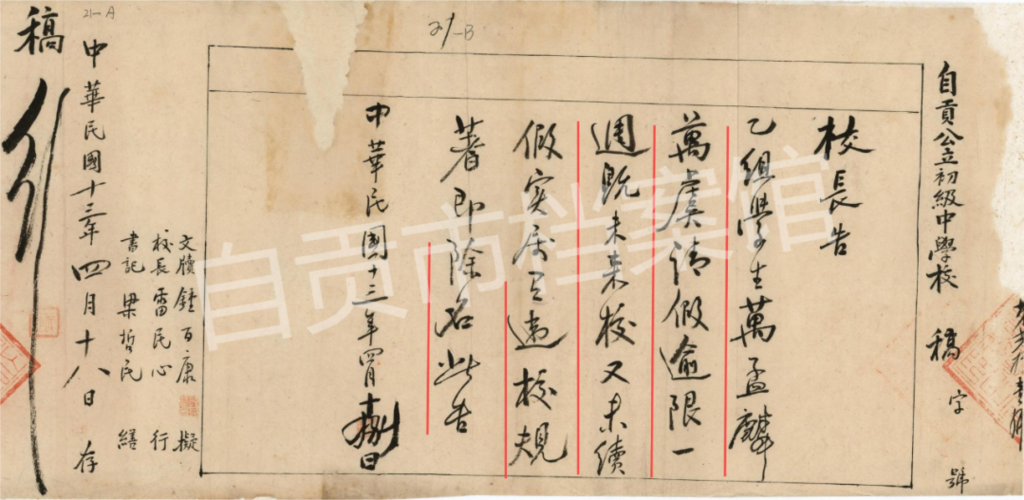 21-A
21-B
自貢公立初級中學校 稿 字 號
校長告
乙組學生萬孟麟
萬虞請假逾限一
週既未來校又未續
假实屬有違校規
著即除名此告
中華民國十三年四月十八日
文牘鍾百康 擬
校長雷民心 行
書記梁哲民 繕
中華民國十三年四月十八日 存
稿
行
自贡市档案馆